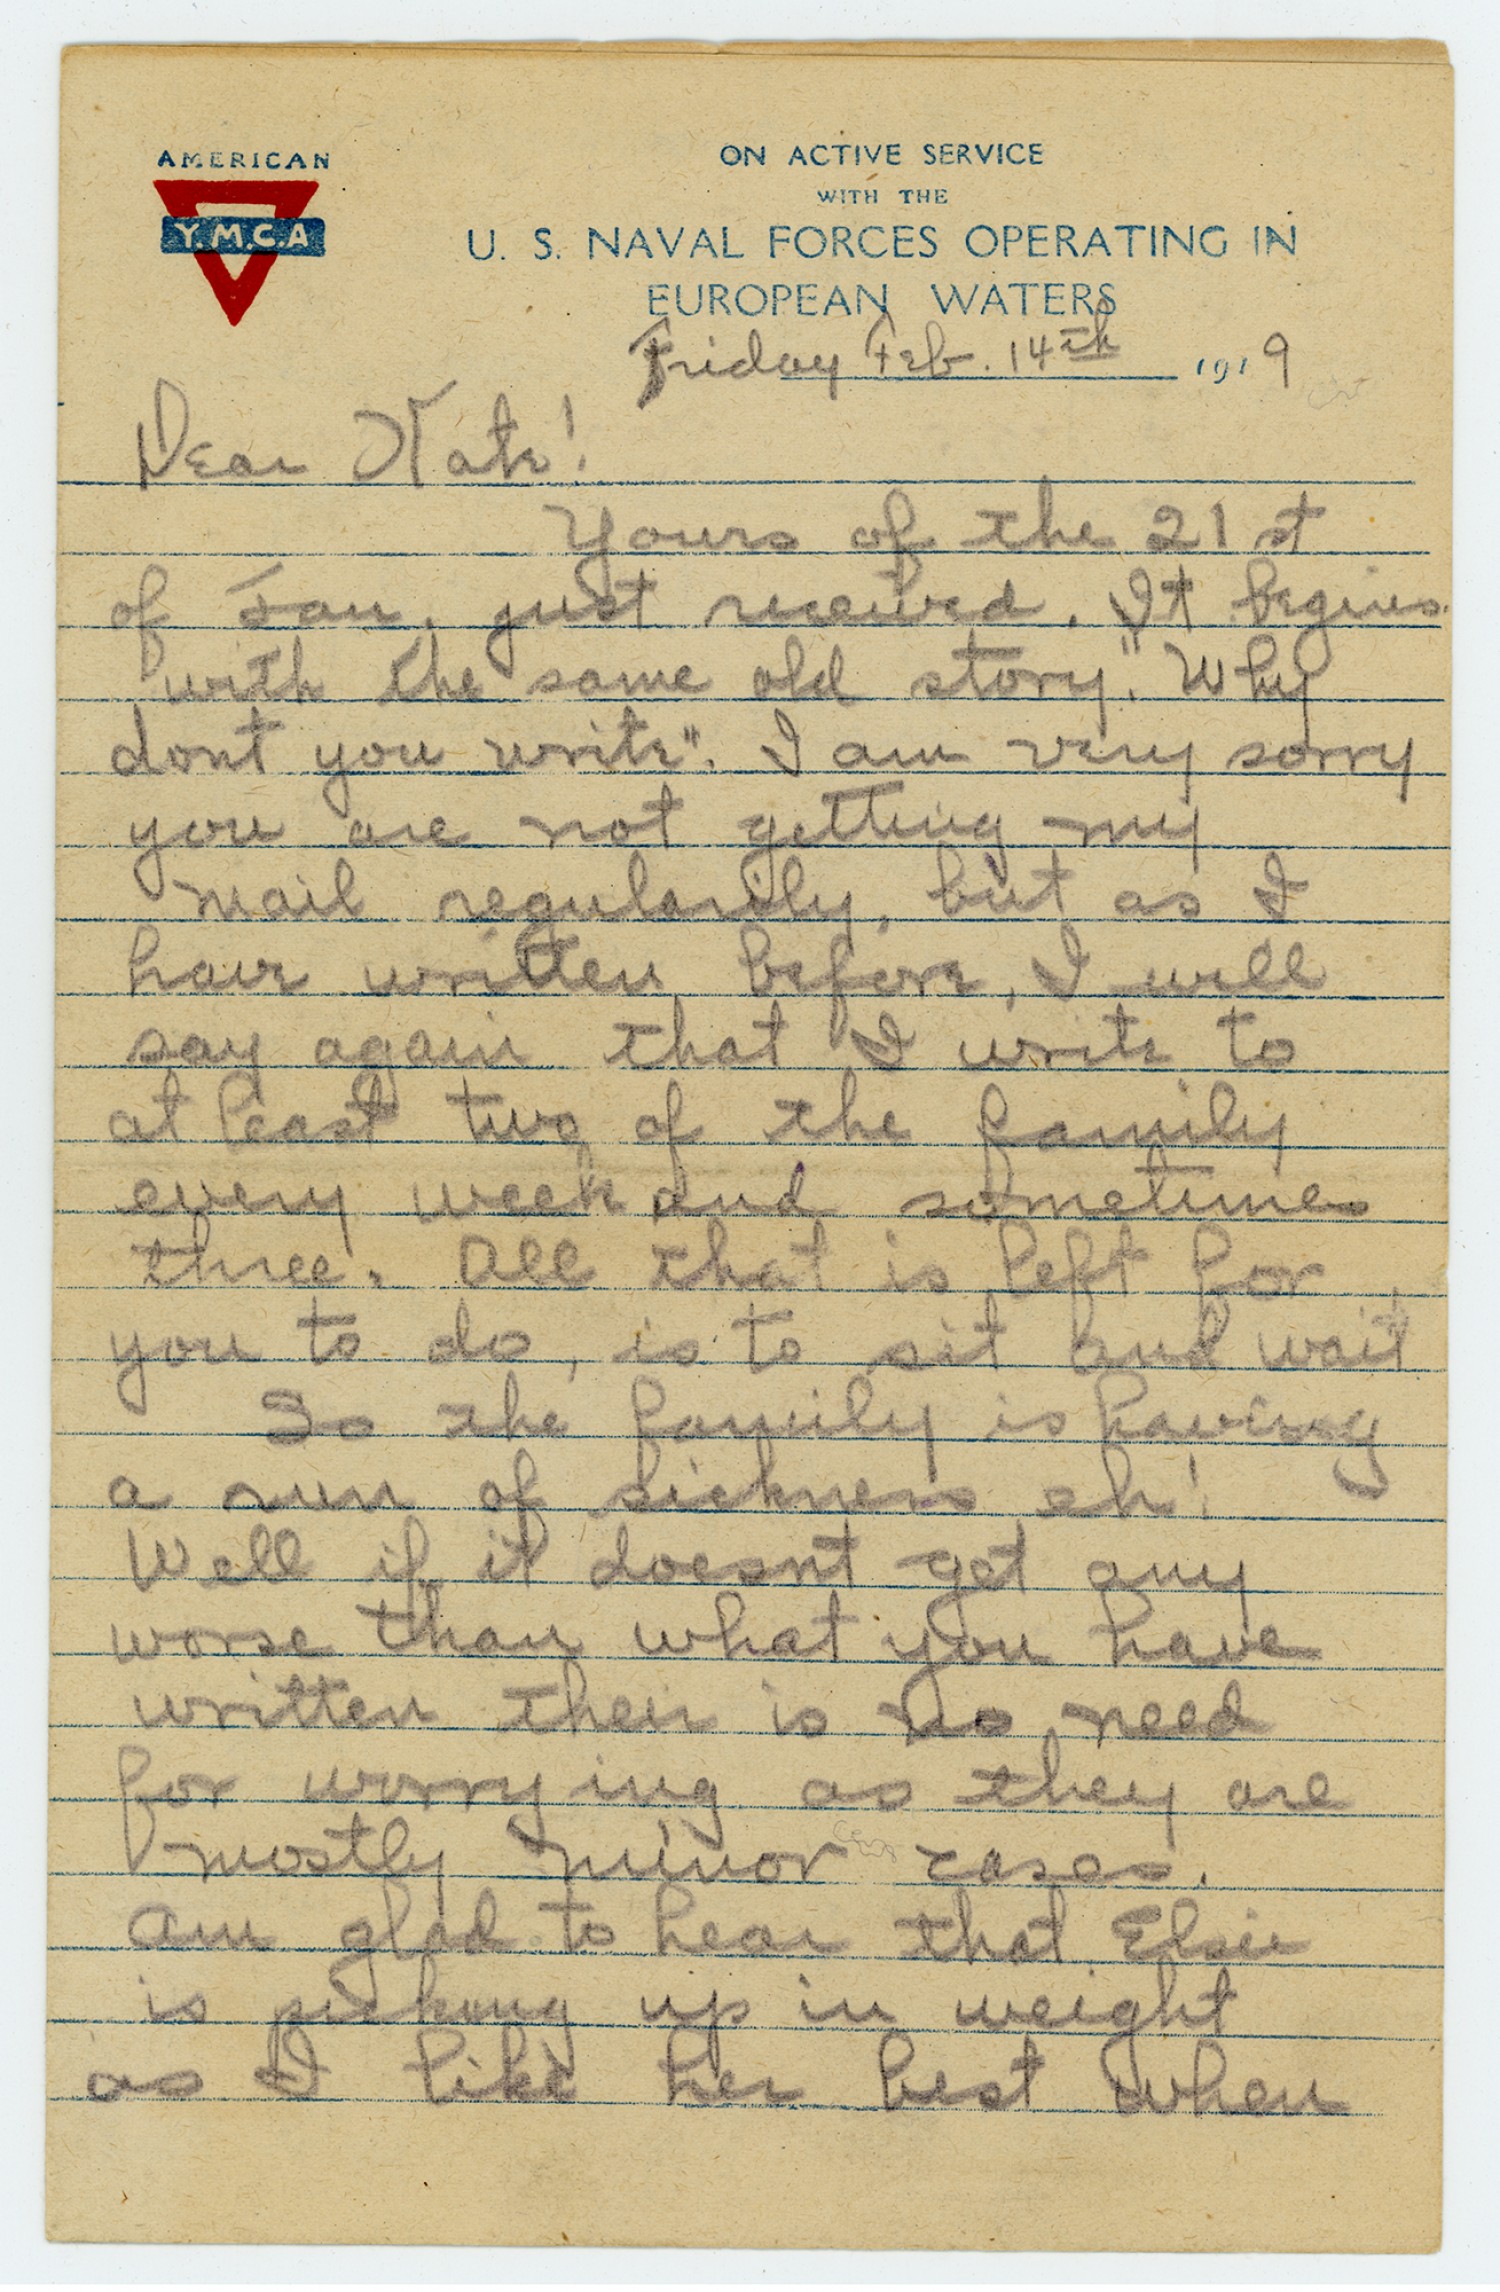 AMERICAN
Y.M.C.A
ON ACTIVE SERVICE
WITH THE
U. S. NAVAL FORCES OPERATING IN
EUROPEAN WATERS
Friday Feb. 14th 1919
Dear Kate!
Yours of the 21st
of Jan. just received. It begins
with the same old story". Why
dont you write". I am very sorry
you are not getting my
mail regularily, but as I
have written before, I will
say again that I write to
at least two of the family
every week and sometimes
three. All that is left for
you to do, is to sit and wait
So the family is having
a run of sickness eh!
Well if it doesnt get any
worse than what you have
written their is no need
for worrying as they are
mostly minor cases.
Am glad to hear that Elsie
is picking up in weight
as I like her best when